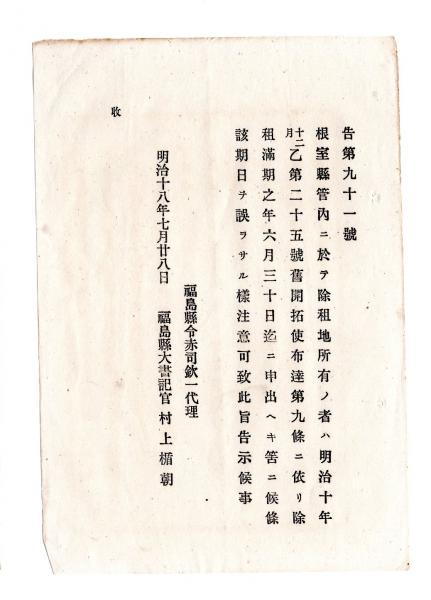 告第九十一號
根室縣管內ニ於テ除租地所有ノ者ハ明治十年
十二月乙第二十五號舊開拓使布達第九條ニ依リ除
租滿期之年六月三十日迄ニ申出ヘキ筈ニ候條
該期日ヲ誤ヲサル樣注意可致此旨告示候事
福島縣令赤司欽一代理
明治十八年七月廿八日　福島縣大書記官　村上楯朝
收